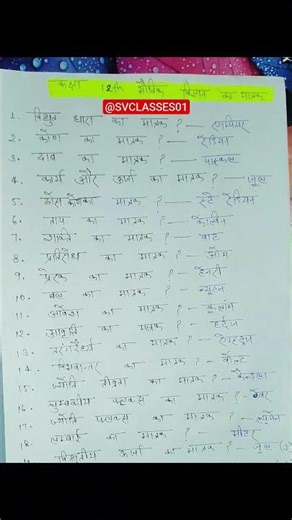 कक्षा 12th भौतिक विज्ञान का मात्रक
@SVCLASSES01
1. विद्युत धारा का मात्रक ? - एम्पीयर
2. कोण का मात्रक ? - रेडियन
3. दाब का मात्रक ? - पास्कल
4. कार्य और ऊर्जा का मात्रक ? - जूल
5. ठोस कोण का मात्रक ? - स्टे रेडियन
6. ताप का मात्रक ? - केल्विन
7. शक्ति का मात्रक ? - वाट
8. प्रतिरोध का मात्रक ? - ओम
9. प्रेरक का मात्रक ? - हेनरी
10. बल का मात्रक ? - न्यूटन
11. आवेश का मात्रक ? - कूलॉम
12. आवृत्ति का मात्रक ? - हर्ट्ज
13. तरंगदैर्ध्य का मात्रक ? - ऐंग्स्ट्रम
14. विभवान्तर का मात्रक ? - वोल्ट
15. ज्योति तीव्रता का मात्रक ? - कैण्डेला
16. चुम्बकीय फ्लक्स का मात्रक ? - वेबर
17. ज्योति फ्लक्स का मात्रक ? - ल्यूमेन
18. लम्बाई का मात्रक ? - मीटर
ऊर्जा का मात्रक ? - जूल